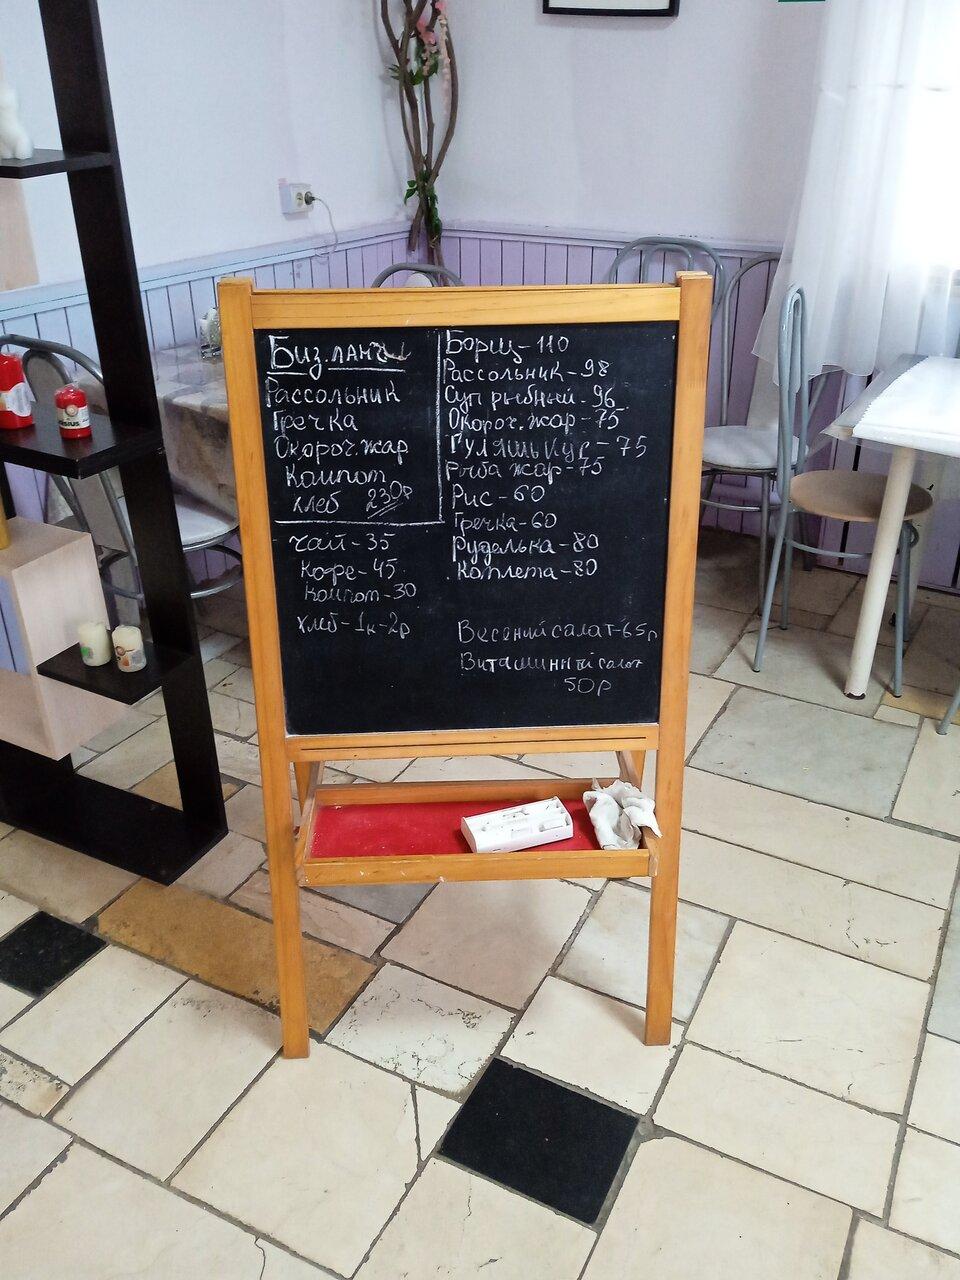 Биз.ланч
Рассольник
Гречка
Окороч. жар
Компот
хлеб 230р
Чай-35
Кофе-45
Компот-30
хлеб-1к-2р
Борщ-110
Рассольник-98
Суп рыбный-96
Окороч. жар-75
Гуляш кур-75
Рыба жар-75
Рис-60
Гречка-60
Руделька-80
Котлета-80
Весений салат-65р
Витаминный салат
50р